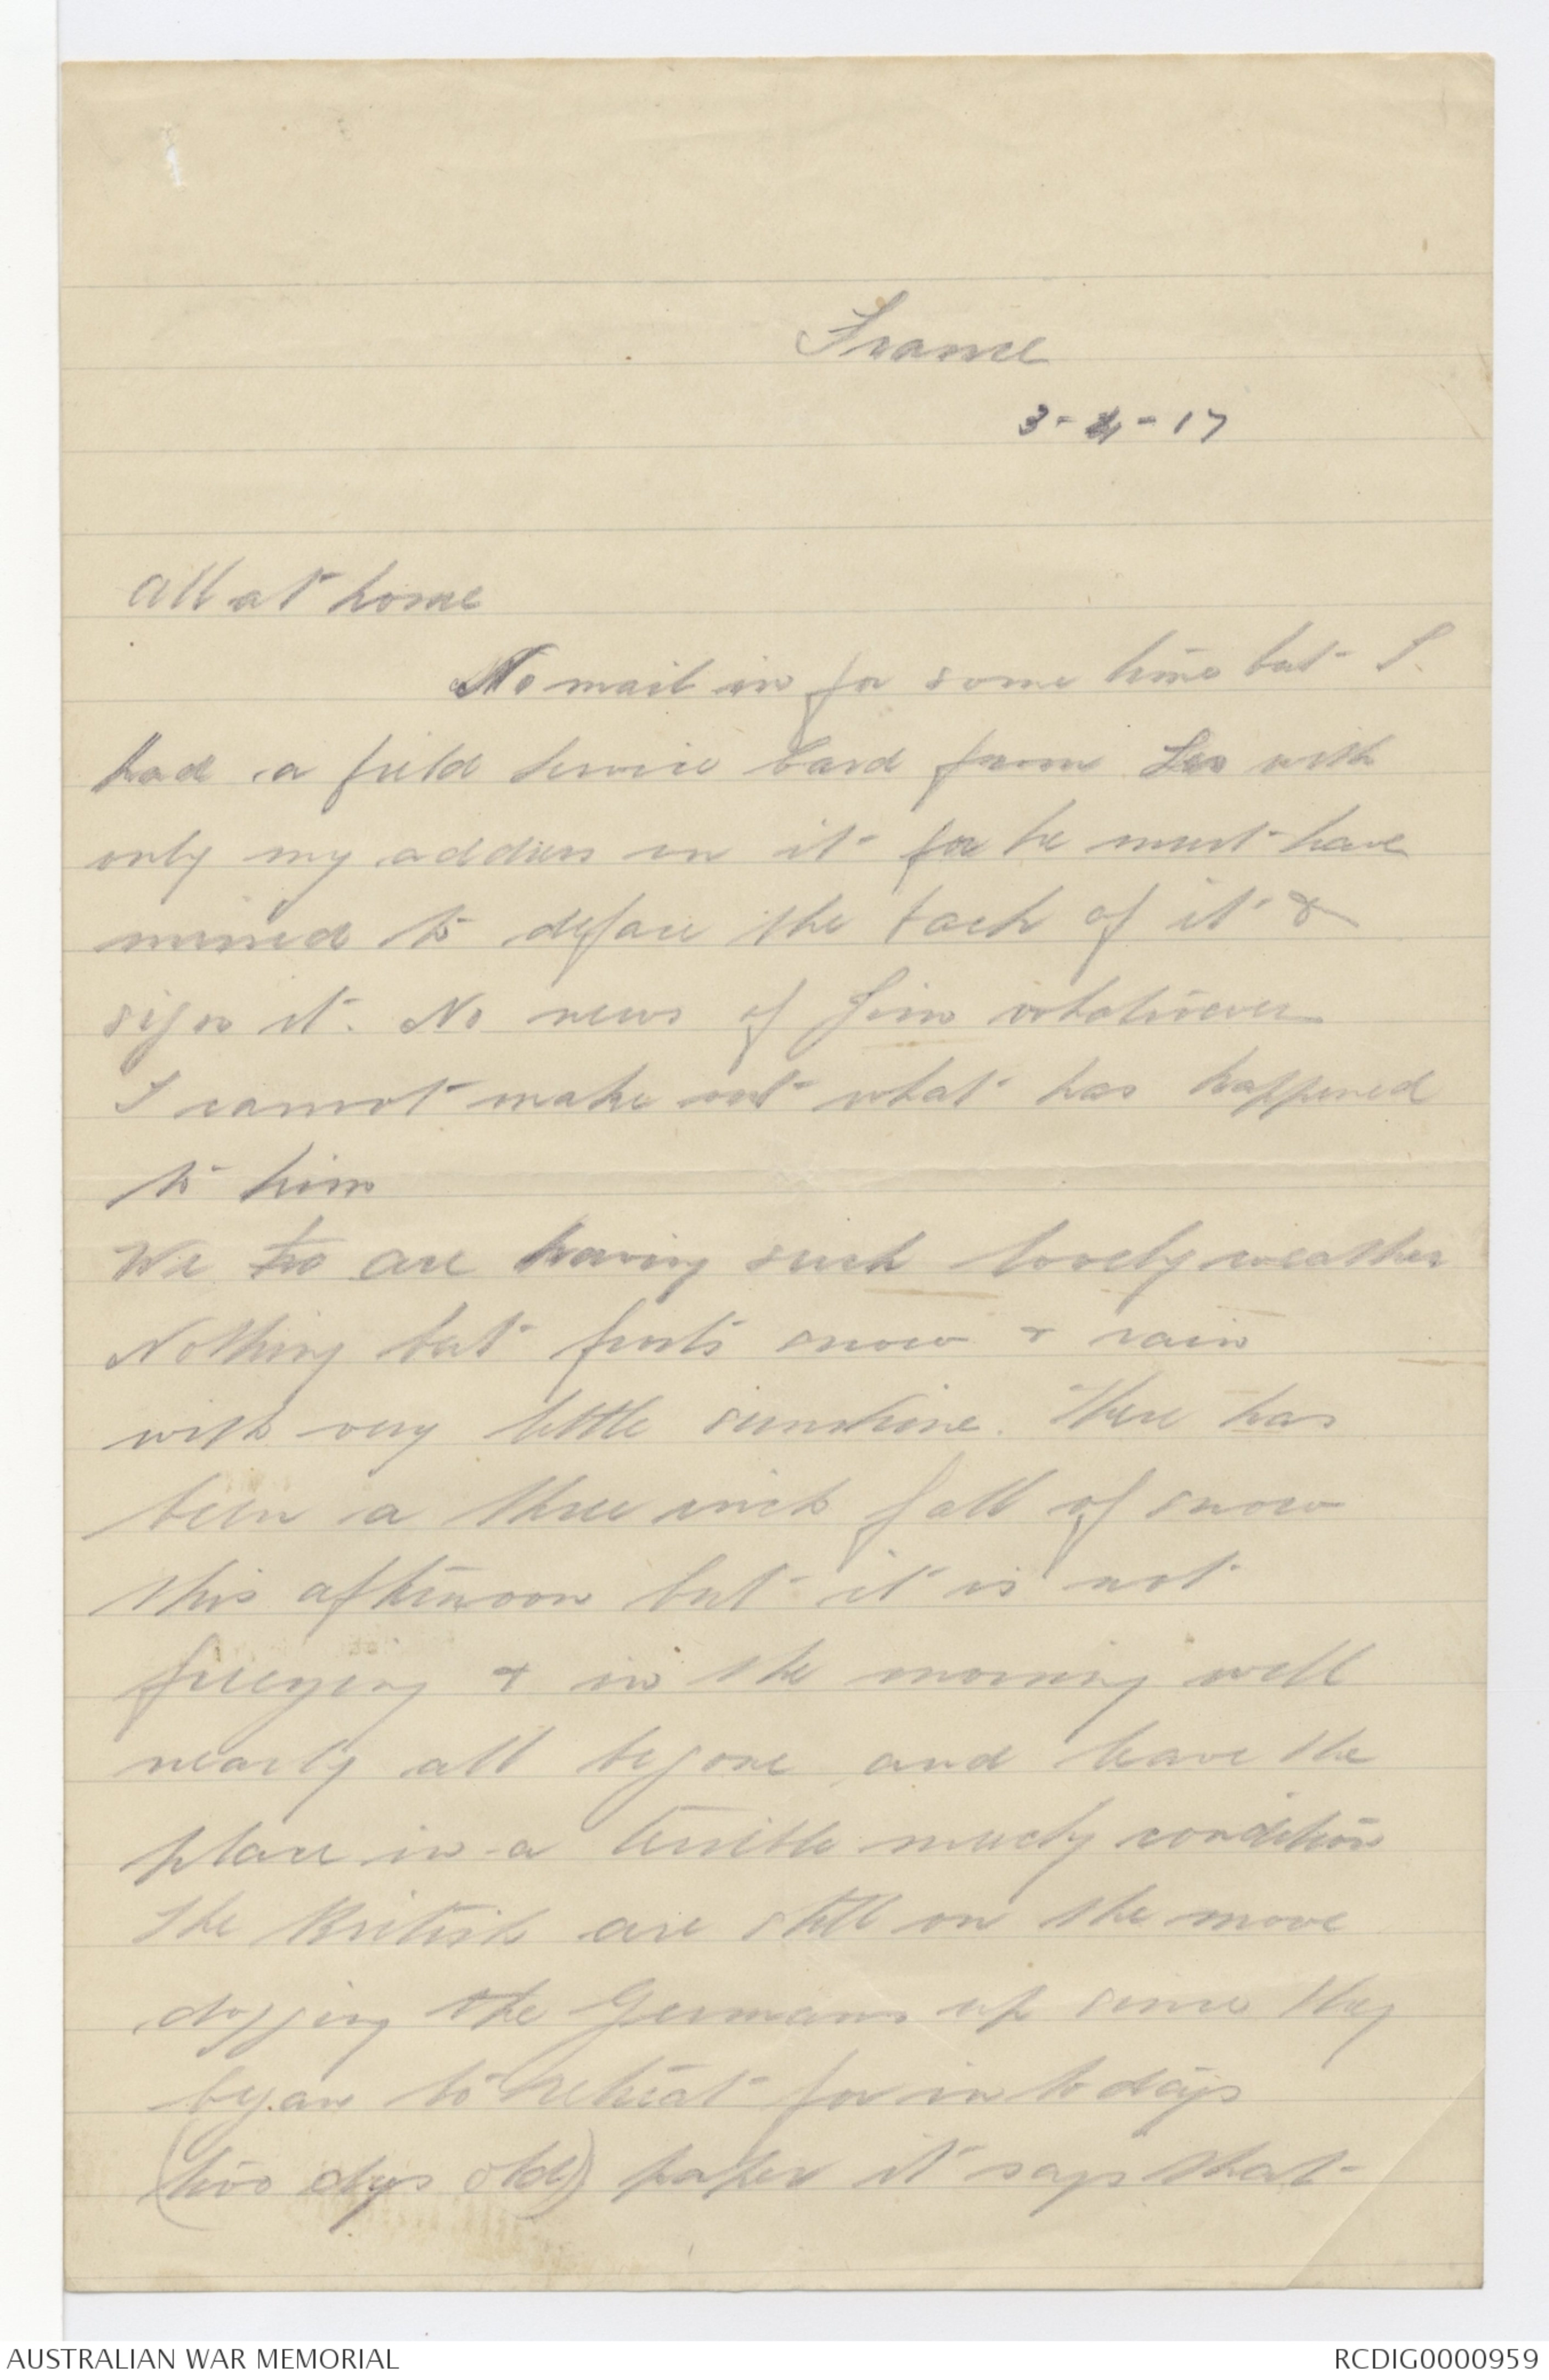 France
3-4-17
All at home
No mail in for some time but I
had a field service card from Les with
only my address on it for he must have
missed to deface the back of it &
sign it. No news of Jim whatsoever
I cannot make out what has happened
to him
We are having such lovely weather
Nothing but frosts snow & rain
with very little sunshine. There has
been a three inch fall of snow
this afternoon but it is not
freezing & in the morning will
nearly all be gone and leave the
place in a terrible mucky condition
The British are still on the move
dogging the Germans up since they
began to retreat for in todays
(two dys old) paper it says that
AUSTRALIAN WAR MEMORIAL
RCDIG0000959